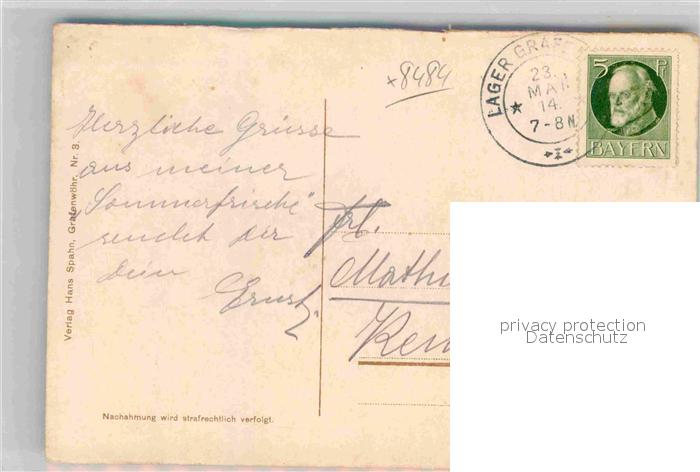 *8484
LAGER GRAFE
23.
MAI
14.
7-8 N.
*I*
5 Pf
BAYERN
Herzliche Grüsse
aus meiner
„Sommerfrische“
sendet dir
dein
Ernst
Frl.
Math
Kem
Verlag Hans Spahn, Grafenwöhr, Nr. 3.
Nachahmung wird strafrechtlich verfolgt.
privacy protection
Datenschutz